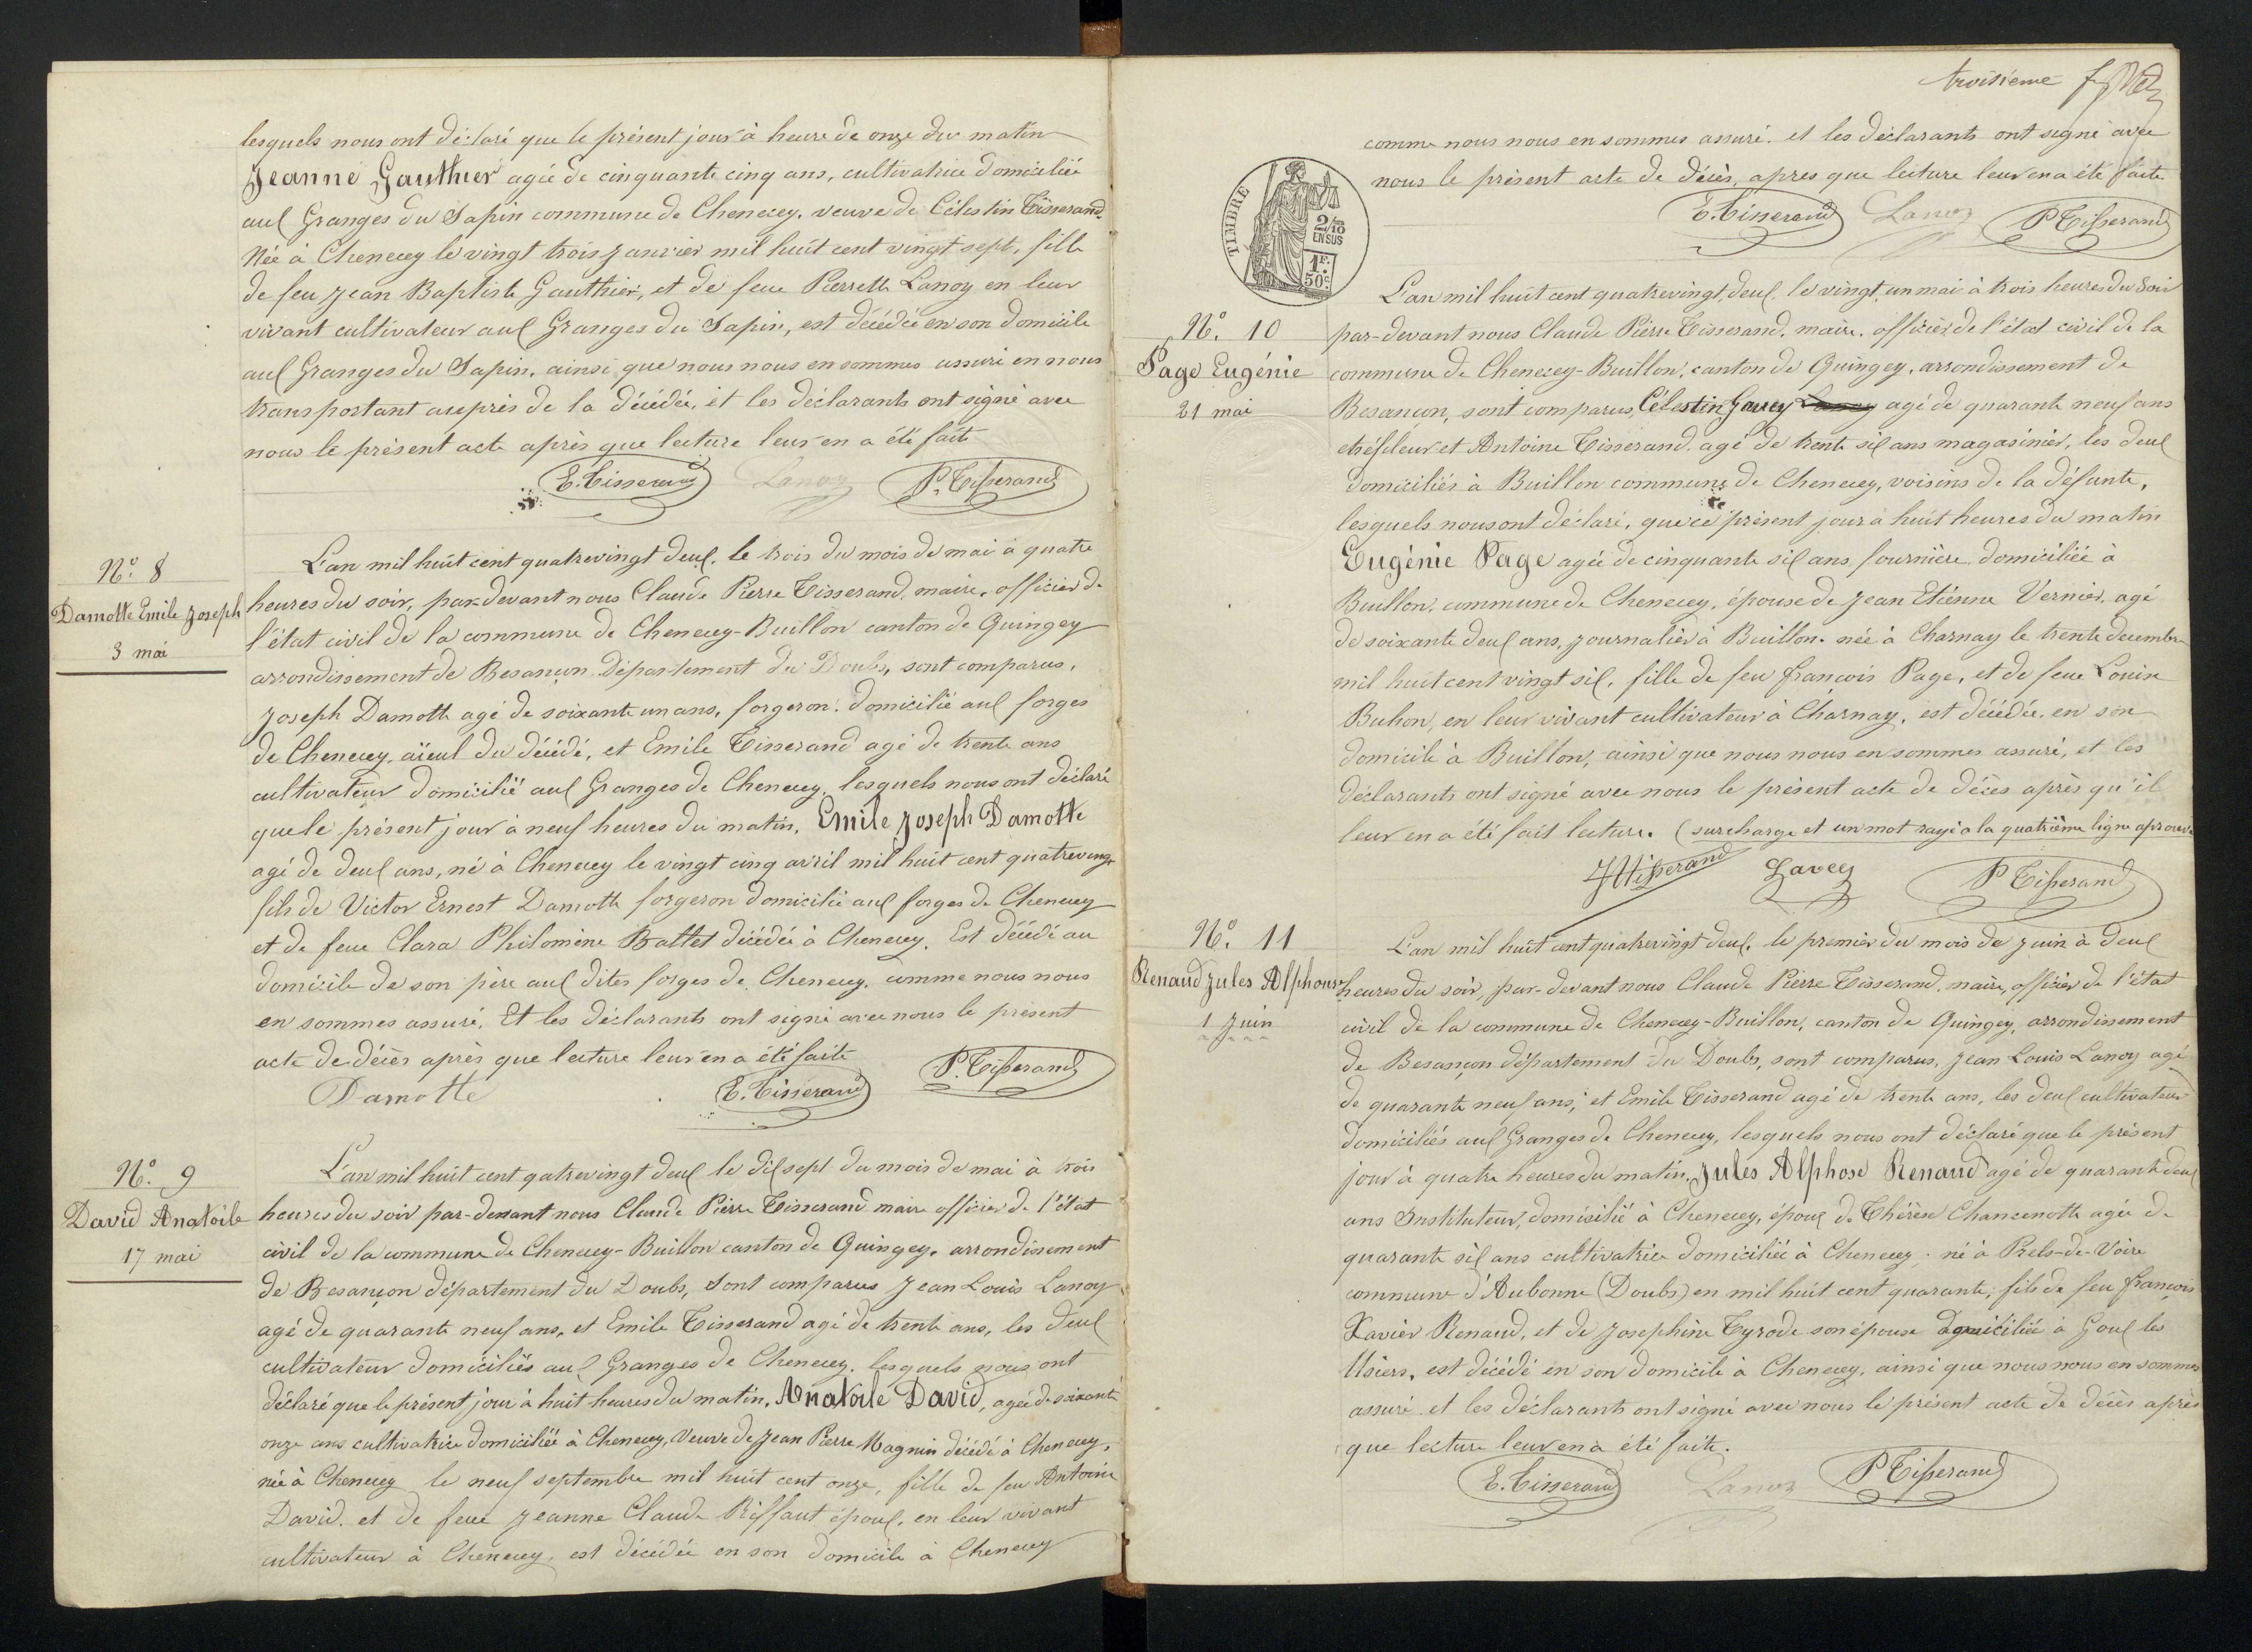 lesquels nous ont déclaré que le présent jour à heure de onze du matin
Jeanne Gauthier agée de cinquante cinq ans, cultivatrice domiciliée
aux Granges du Sapin commune de Chenecey, veuve de Célestin Tisserand.
Née à Chenecey le vingt trois janvier mil huit cent vingt sept, fille
de feu Jean Baptiste Gauthier, et de feue Pierrette Lanoy en leur
vivant cultivateur aux Granges du Sapin, est décédée en son domicile
aux Granges du Sapin, ainsi que nous nous en sommes assuré en nous
transportant auprès de la décédée, et les déclarants ont signé avec
nous le présent acte après que lecture leur en a été faite
E. Tisserand Lanoy P. Tisserand
N° 8
Damotte Emile Joseph
3 mai
L'an mil huit cent quatrevingt deux, le trois du mois de mai à quatre
heures du soir, par-devant nous Claude Pierre Tisserand, maire, officier de
l'état civil de la commune de Chenecey-Buillon canton de Quingey
arrondissement de Besançon département du Doubs, sont comparus,
Joseph Damotte agé de soixante un ans, forgeron, domicilié aux forges
de Chenecey, aïeul du décédé, et Emile Tisserand agé de trente ans
cultivateur domicilié aux Granges de Chenecey, lesquels nous ont déclaré
que le présent jour à neuf heures du matin, Emile Joseph Damotte
agé de deux ans, né à Chenecey le vingt cinq avril mil huit cent quatrevingt
fils de Victor Ernest Damotte forgeron domicilié aux forges de Chenecey
et de feue Clara Philomène Battet décédée à Chenecey. Est décédé au
domicile de son père aux dites forges de Chenecey, comme nous nous
en sommes assuré. Et les déclarants ont signé avec nous le présent
acte de décès après que lecture leur en a été faite
Damotte E. Tisserand P. Tisserand
N° 9
David Anatoile
17 mai
L'an mil huit cent qatrevingt deux le dix sept du mois de mai à trois
heures du soir par-devant nous Claude Pierre Tisserand maire officier de l'état
civil de la commune de Chenecey-Buillon canton de Quingey, arrondissement
de Besançon département du Doubs, sont comparus Jean Louis Lanoy
agé de quarante neuf ans, et Emile Tisserand agé de trente ans, les deux
cultivateur domiciliés aux Granges de Chenecey, lesquels nous ont
déclaré que le présent jour à huit heures du matin, Anatoile David, agée de soixante
onze ans cultivatrice domiciliée à Chenecey, Veuve de Jean Pierre Magnin décédé à Chenecey,
née à Chenecey le neuf septembre mil huit cent onze, fille de feu Antoine
David, et de feue Jeanne Claude Riffaut époux, en leur vivant
cultivateur à Chenecey, est décédée en son domicile à Chenecey
troisième
comme nous nous en sommes assuré. et les déclarants ont signé avec
nous le présent acte de décès, apres que lecture leur en a été faite
E. Tisserand Lanoy P Tisserand
TIMBRE
2/10
EN SUS
1F.
50c
N° 10
Page Eugénie
21 mai
L'an mil huit cent quatrevingt deux, le vingt un mai à trois heures du soir
par-devant nous Claude Pierre Tisserand, maire, officier de l'état civil de la
commune de Chenecey-Buillon, canton de Quingey, arrondissement de
Besançon, sont comparus, Célestin Gavey agé de quarante neuf ans
tréfileur et Antoine Tisserand, agé de trente six ans magasinier, les deux
domiciliés à Buillon commune de Chenecey, voisins de la défunte,
lesquels nous ont déclaré, que ce présent jour à huit heures du matin
Eugénie Page agée de cinquante six ans, journière, domiciliée à
Buillon, commune de Chenecey, épouse de Jean Etienne Vernier, agé
de soixante deux ans, journalier à Buillon. née à Charnay le trente decembre
mil huit cent vingt six, fille de feu François Page, et de feue Louise
Buhon, en leur vivant cultivateur à Charnay, est décédée, en son
domicile à Buillon, ainsi que nous nous en sommes assuré, et les
déclarants ont signé avec nous le présent acte de décès après qu'il
leur en a été fait lecture. (surcharge et un mot rayé a la quatrième ligne aprouvé
Tisserand Gavey P Tisserand
N° 11
Renaud Jules Alphonse
1 Juin
L'an mil huit cent quatrevingt deux, le premier du mois de juin à deux
heures du soir, par-devant nous Claude Pierre Tisserand, maire, officier de l'état
civil de la commune de Chenecey-Buillon, canton de Quingey, arrondissement
de Besançon département du Doubs, sont comparus, Jean Louis Lanoy agé
de quarante neuf ans, et Emile Tisserand agé de trente ans, les deux cultivateur
domiciliés aux Granges de Chenecey, lesquels nous ont déclaré que le présent
jour à quatre heures du matin, Jules Alphose Renaud agé de quarante deux
ans Instituteur, domicilié à Chenecey, époux de Thérèse Chancenotte agée de
quarante six ans cultivatrice domiciliée à Chenecey, né à Prels-de-Voire
commune d'Aubonne (Doubs) en mil huit cent quarante, fils de feu François
Xavier Renaud, et de Josephine Tyrode son épouse domiciliée à Goux les
Usiers, est décédé en son domicile à Chenecey, ainsi que nous nous en sommes
assuré et les déclarants ont signé avec nous le présent acte de décès après
que lecture leur en a été faite.
E. Tisserand Lanoy P Tisserand